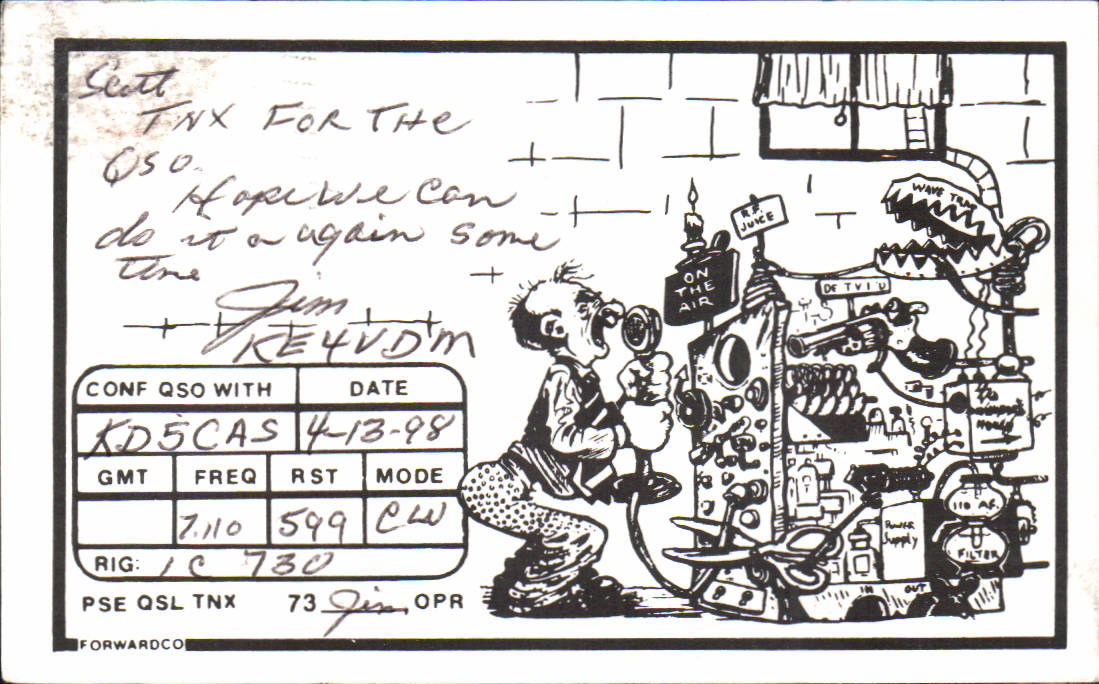 Scott
TNX FOR THE
QSO.
Hope we can
do it a again some
time
Jim
KE4VDM
CONF QSO WITH DATE
KD5CAS 4-13-98
GMT FREQ RST MODE
7.110 599 CW
RIG: IC 730
PSE QSL TNX 73 Jim OPR
FORWARDCO
WAVE TRAP
R.F.
JUICE
ON
THE
AIR
POWER
Supply
110 A.F.
FILTER
IN OUT